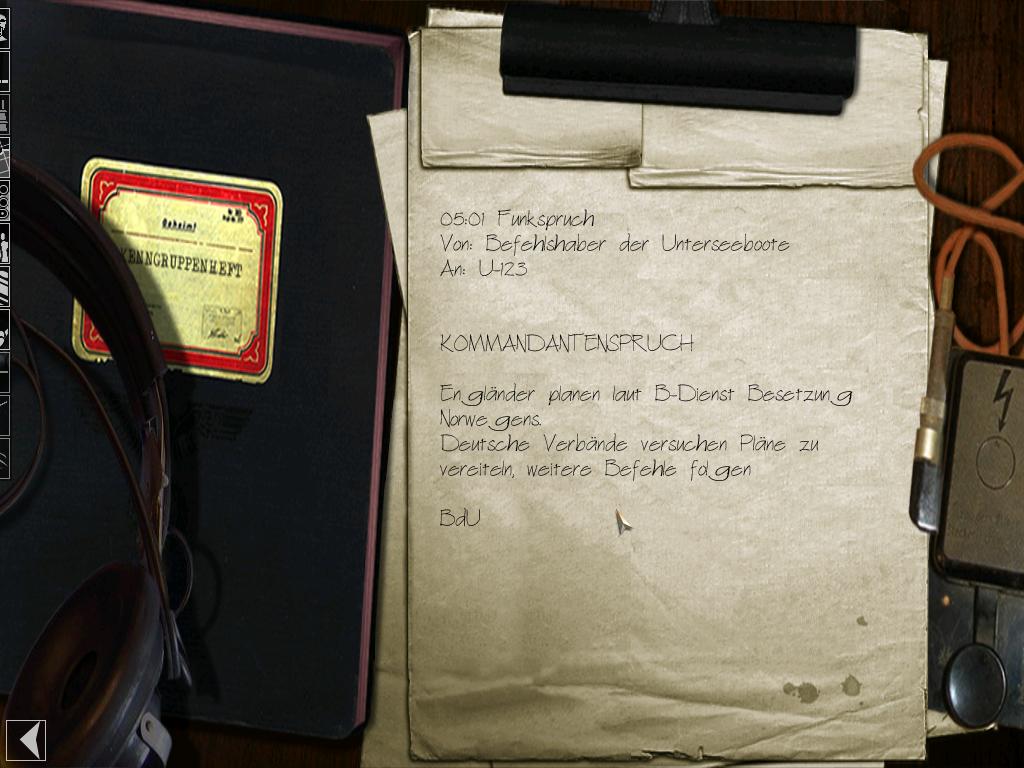 Geheim!
KENNGRUPPENHEFT
05:01 Funkspruch
Von: Befehlshaber der Unterseeboote
An: U-123
KOMMANDANTENSPRUCH
Engländer planen laut B-Dienst Besetzung
Norwegens.
Deutsche Verbände versuchen Pläne zu
vereiteln, weitere Befehle folgen
BdU